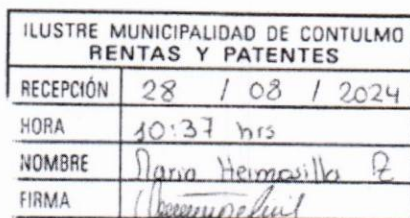 ILUSTRE MUNICIPALIDAD DE CONTULMO
RENTAS Y PATENTES
RECEPCIÓN 28 / 08 / 2024
HORA 10:37 hrs
NOMBRE Maria Hermosilla P
FIRMA